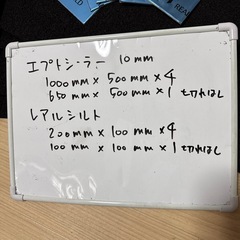 エプトシーラー 10mm
1000mm × 500mm × 4
650mm × 500mm × 1 切れはし
レアルシルト
200mm × 100mm × 4
100mm × 100mm × 1 切れはし